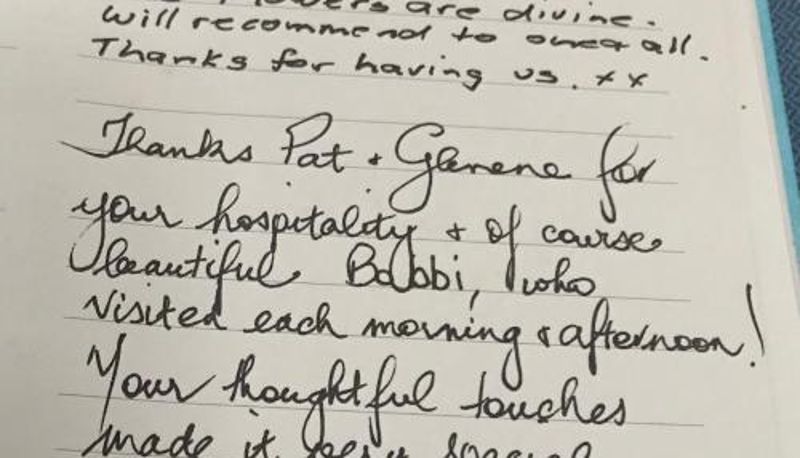 are divine.
will recommend to one & all.
Thanks for having us. xx
Thanks Pat & Glenene for
your hospitality & of course
beautiful Bobbi, who
visited each morning & afternoon!
Your thoughtful touches
made it very special